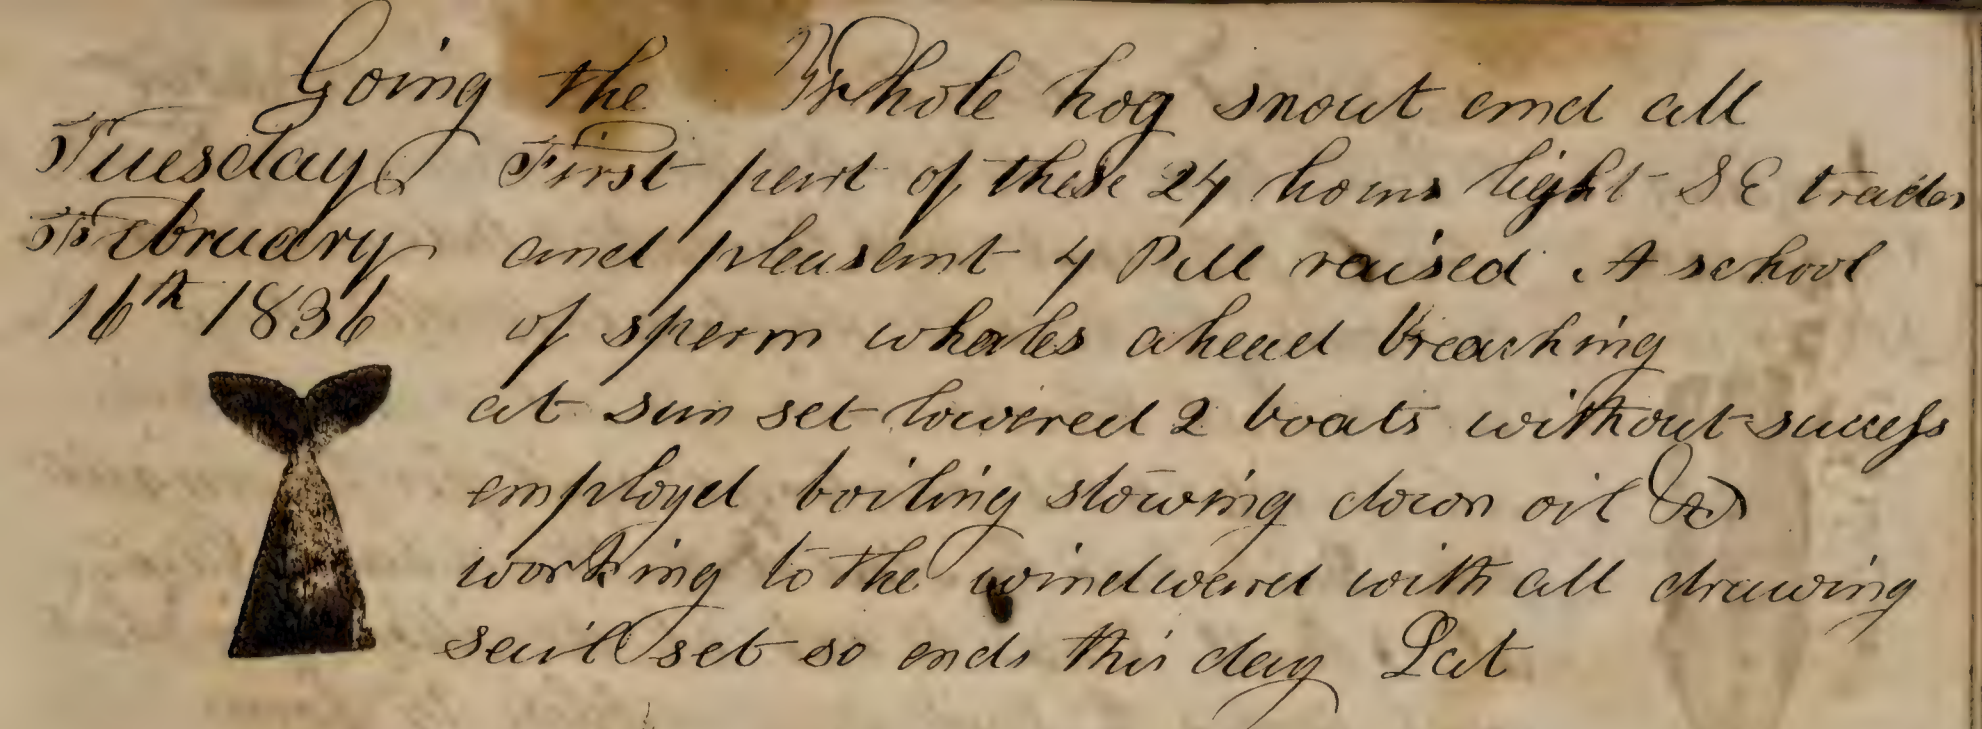 Going the Whole hog snout and all
Tuesday First part of these 24 hours light S E trades
February and pleasant 4 P M raised A school
16th 1836 of sperm whales ahead breaching
at sun set lowered 2 boats without success
employd boiling stowing down oil &
working to the windward with all drawing
sail set so ends this day Lat